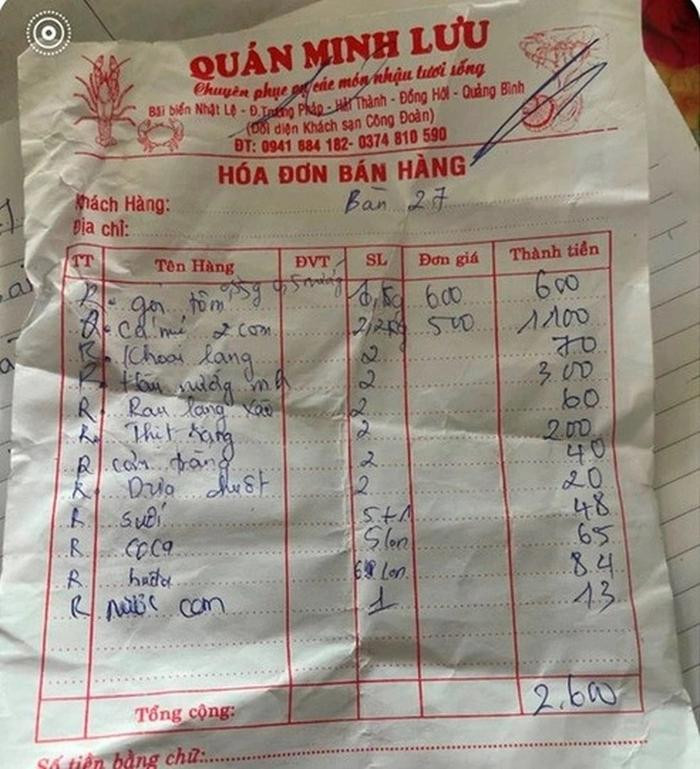 QUÁN MINH LƯU
Chuyên phục vụ các món nhậu tươi sống
Bãi biển Nhật Lệ - Đ.Trương Pháp - Hải Thành - Đồng Hới - Quảng Bình
(Đối diện Khách sạn Công Đoàn)
ĐT: 0941 884 182- 0374 810 590
HÓA ĐƠN BÁN HÀNG
Khách Hàng: Bàn 27
Địa chỉ:
TT Tên Hàng ĐVT SL Đơn giá Thành tiền
R. gỏi tôm 0,5 nướng 600 600
R. cá mú 2 con 2,2kg 500 1100
R. Khoai lang 2 70
R. Hàu nướng mỡ 2 300
R. Rau lang xào 2 60
R. Thịt rang 2 200
R cơm trắng 2 40
R. Dưa chuột 2 20
R suối 5+1 48
R coca 5 lon 65
R huda lon 84
R nước cam 1 13
Tổng cộng: 2.600
Số tiền bằng chữ: